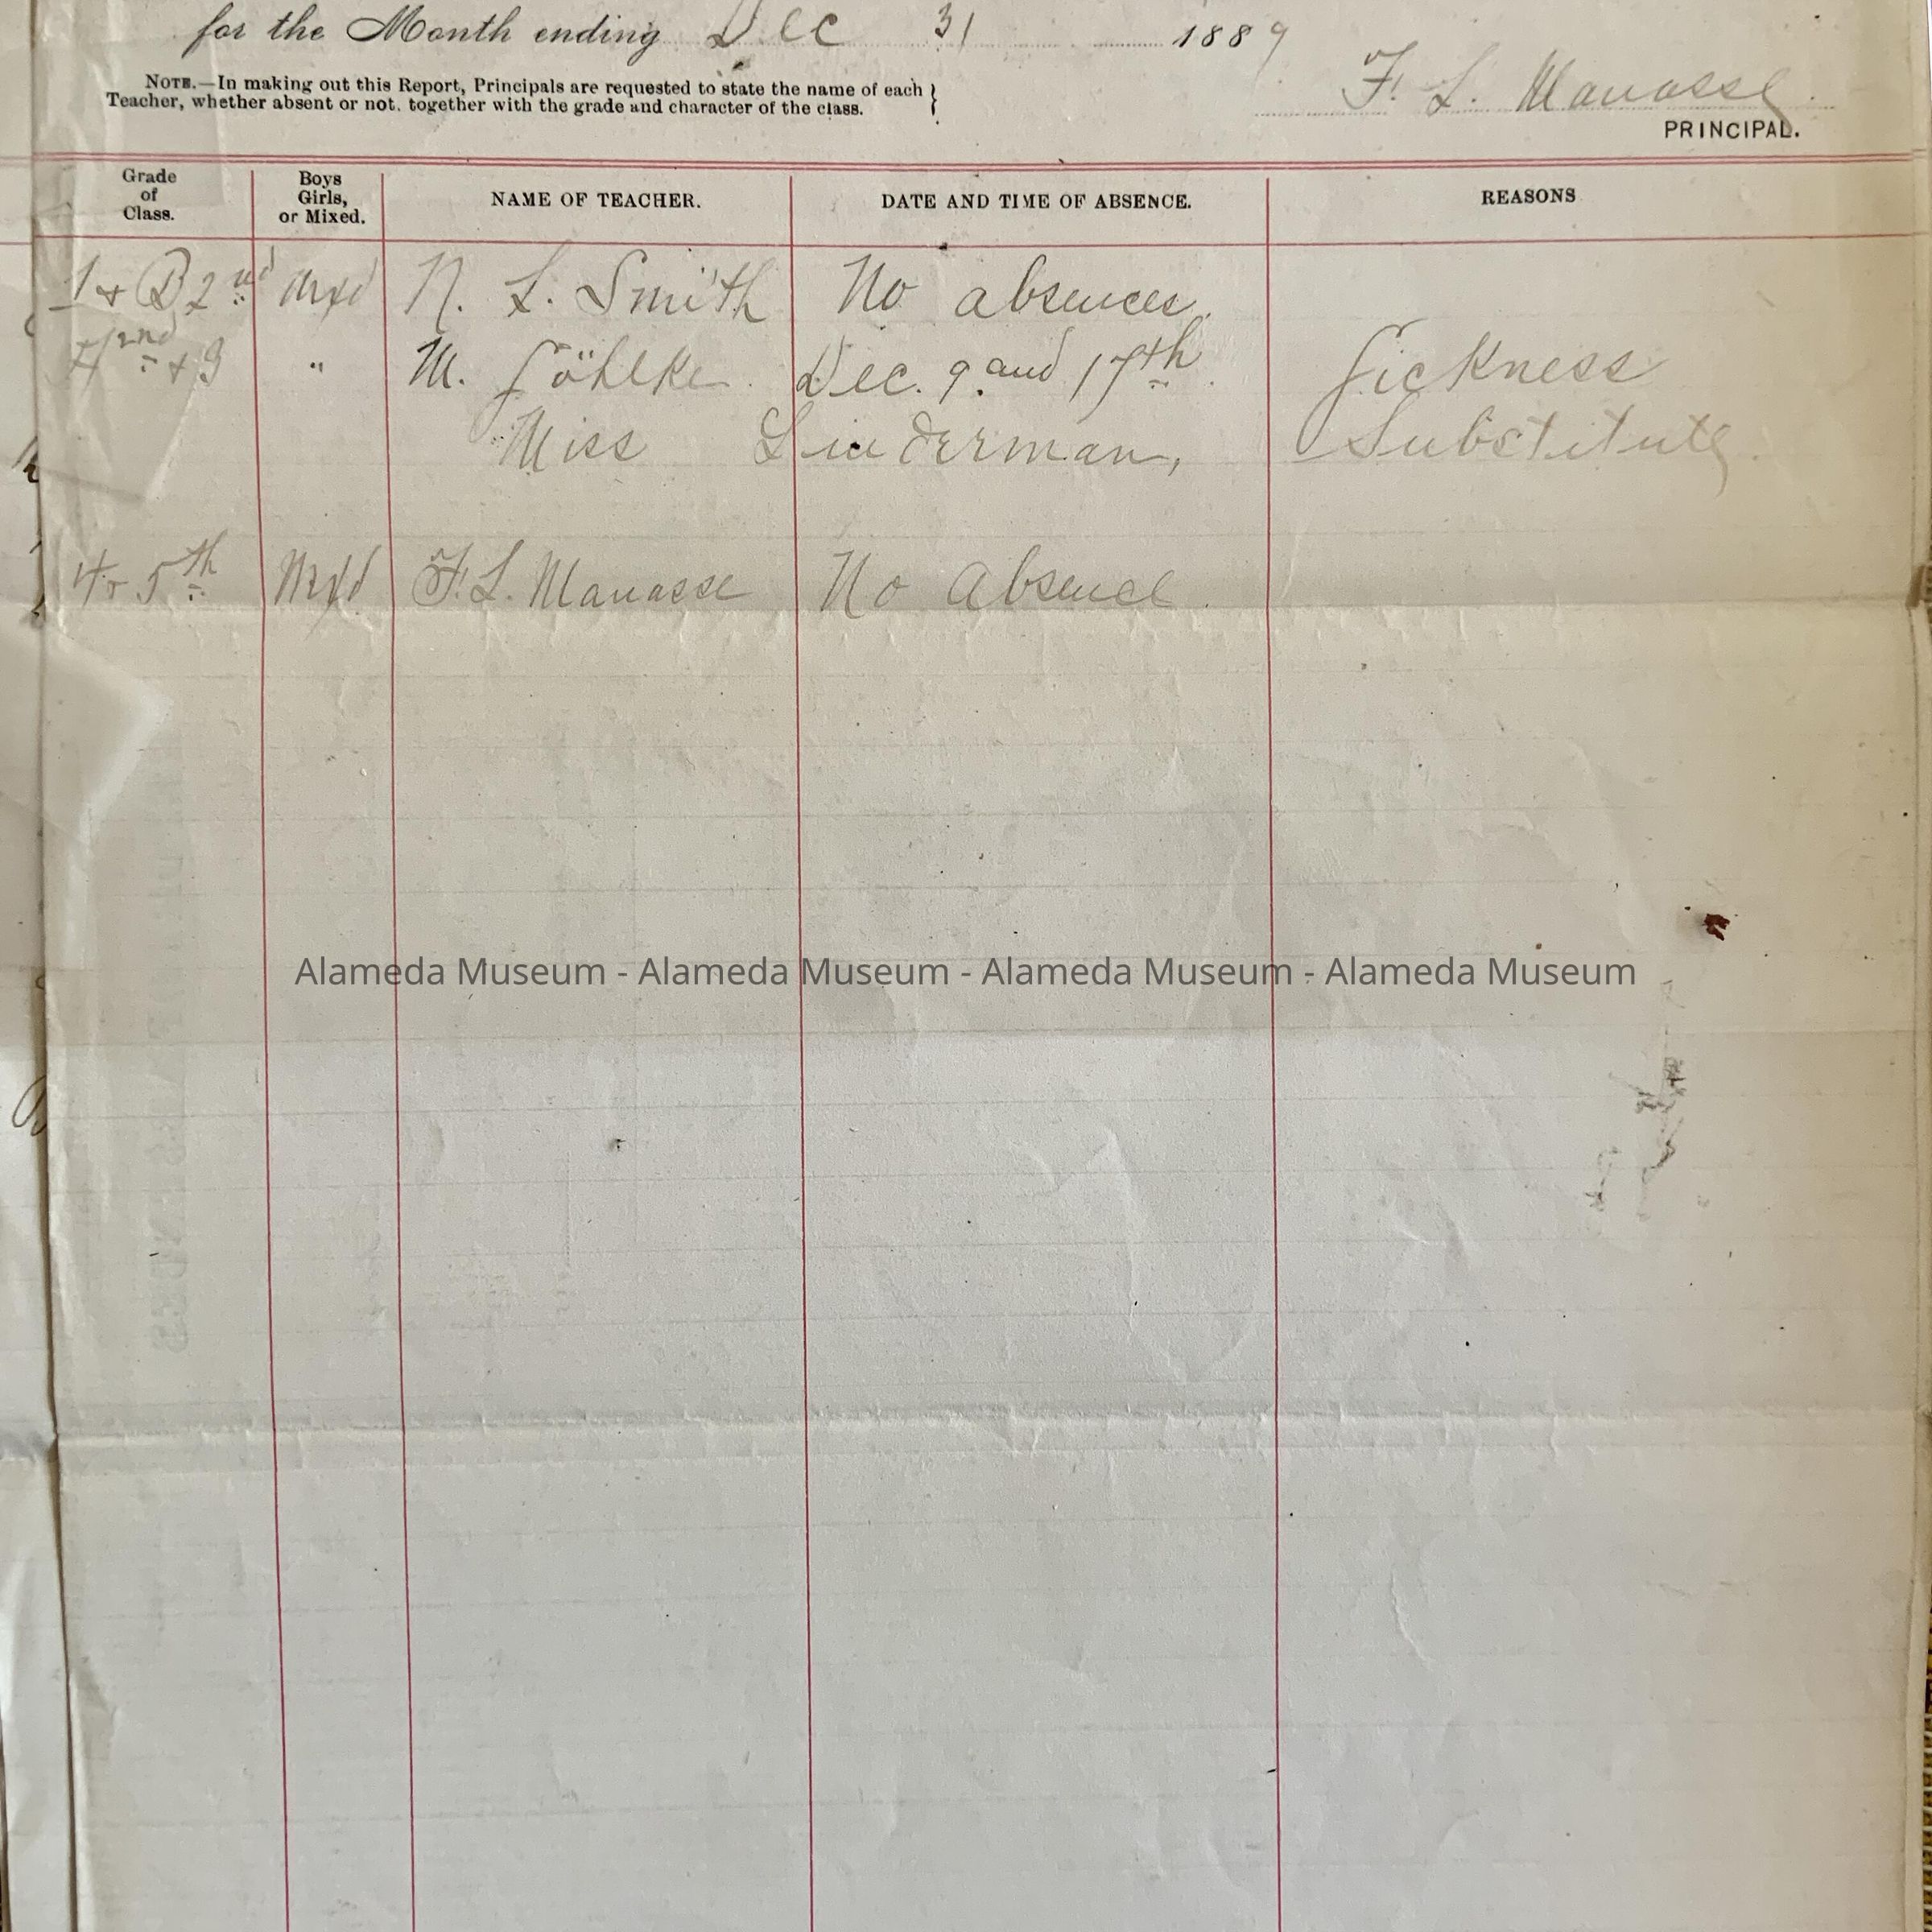 for the Month ending Dec 31 1889
NOTE.—In making out this Report, Principals are requested to state the name of each
Teacher, whether absent or not, together with the grade and character of the class.
F. L. Manasse.
PRINCIPAL.
Grade of Class.
Boys Girls, or Mixed.
NAME OF TEACHER.
DATE AND TIME OF ABSENCE.
REASONS
1 + B 2nd Mxd N. L. Smith No absences.
2nd + 3 " M. Göhlke. Dec. 9 and 17th. Sickness
Miss Linderman, Substitute.
4 + 5th Mxd F. L. Manasse No Absence.
Alameda Museum - Alameda Museum - Alameda Museum - Alameda Museum